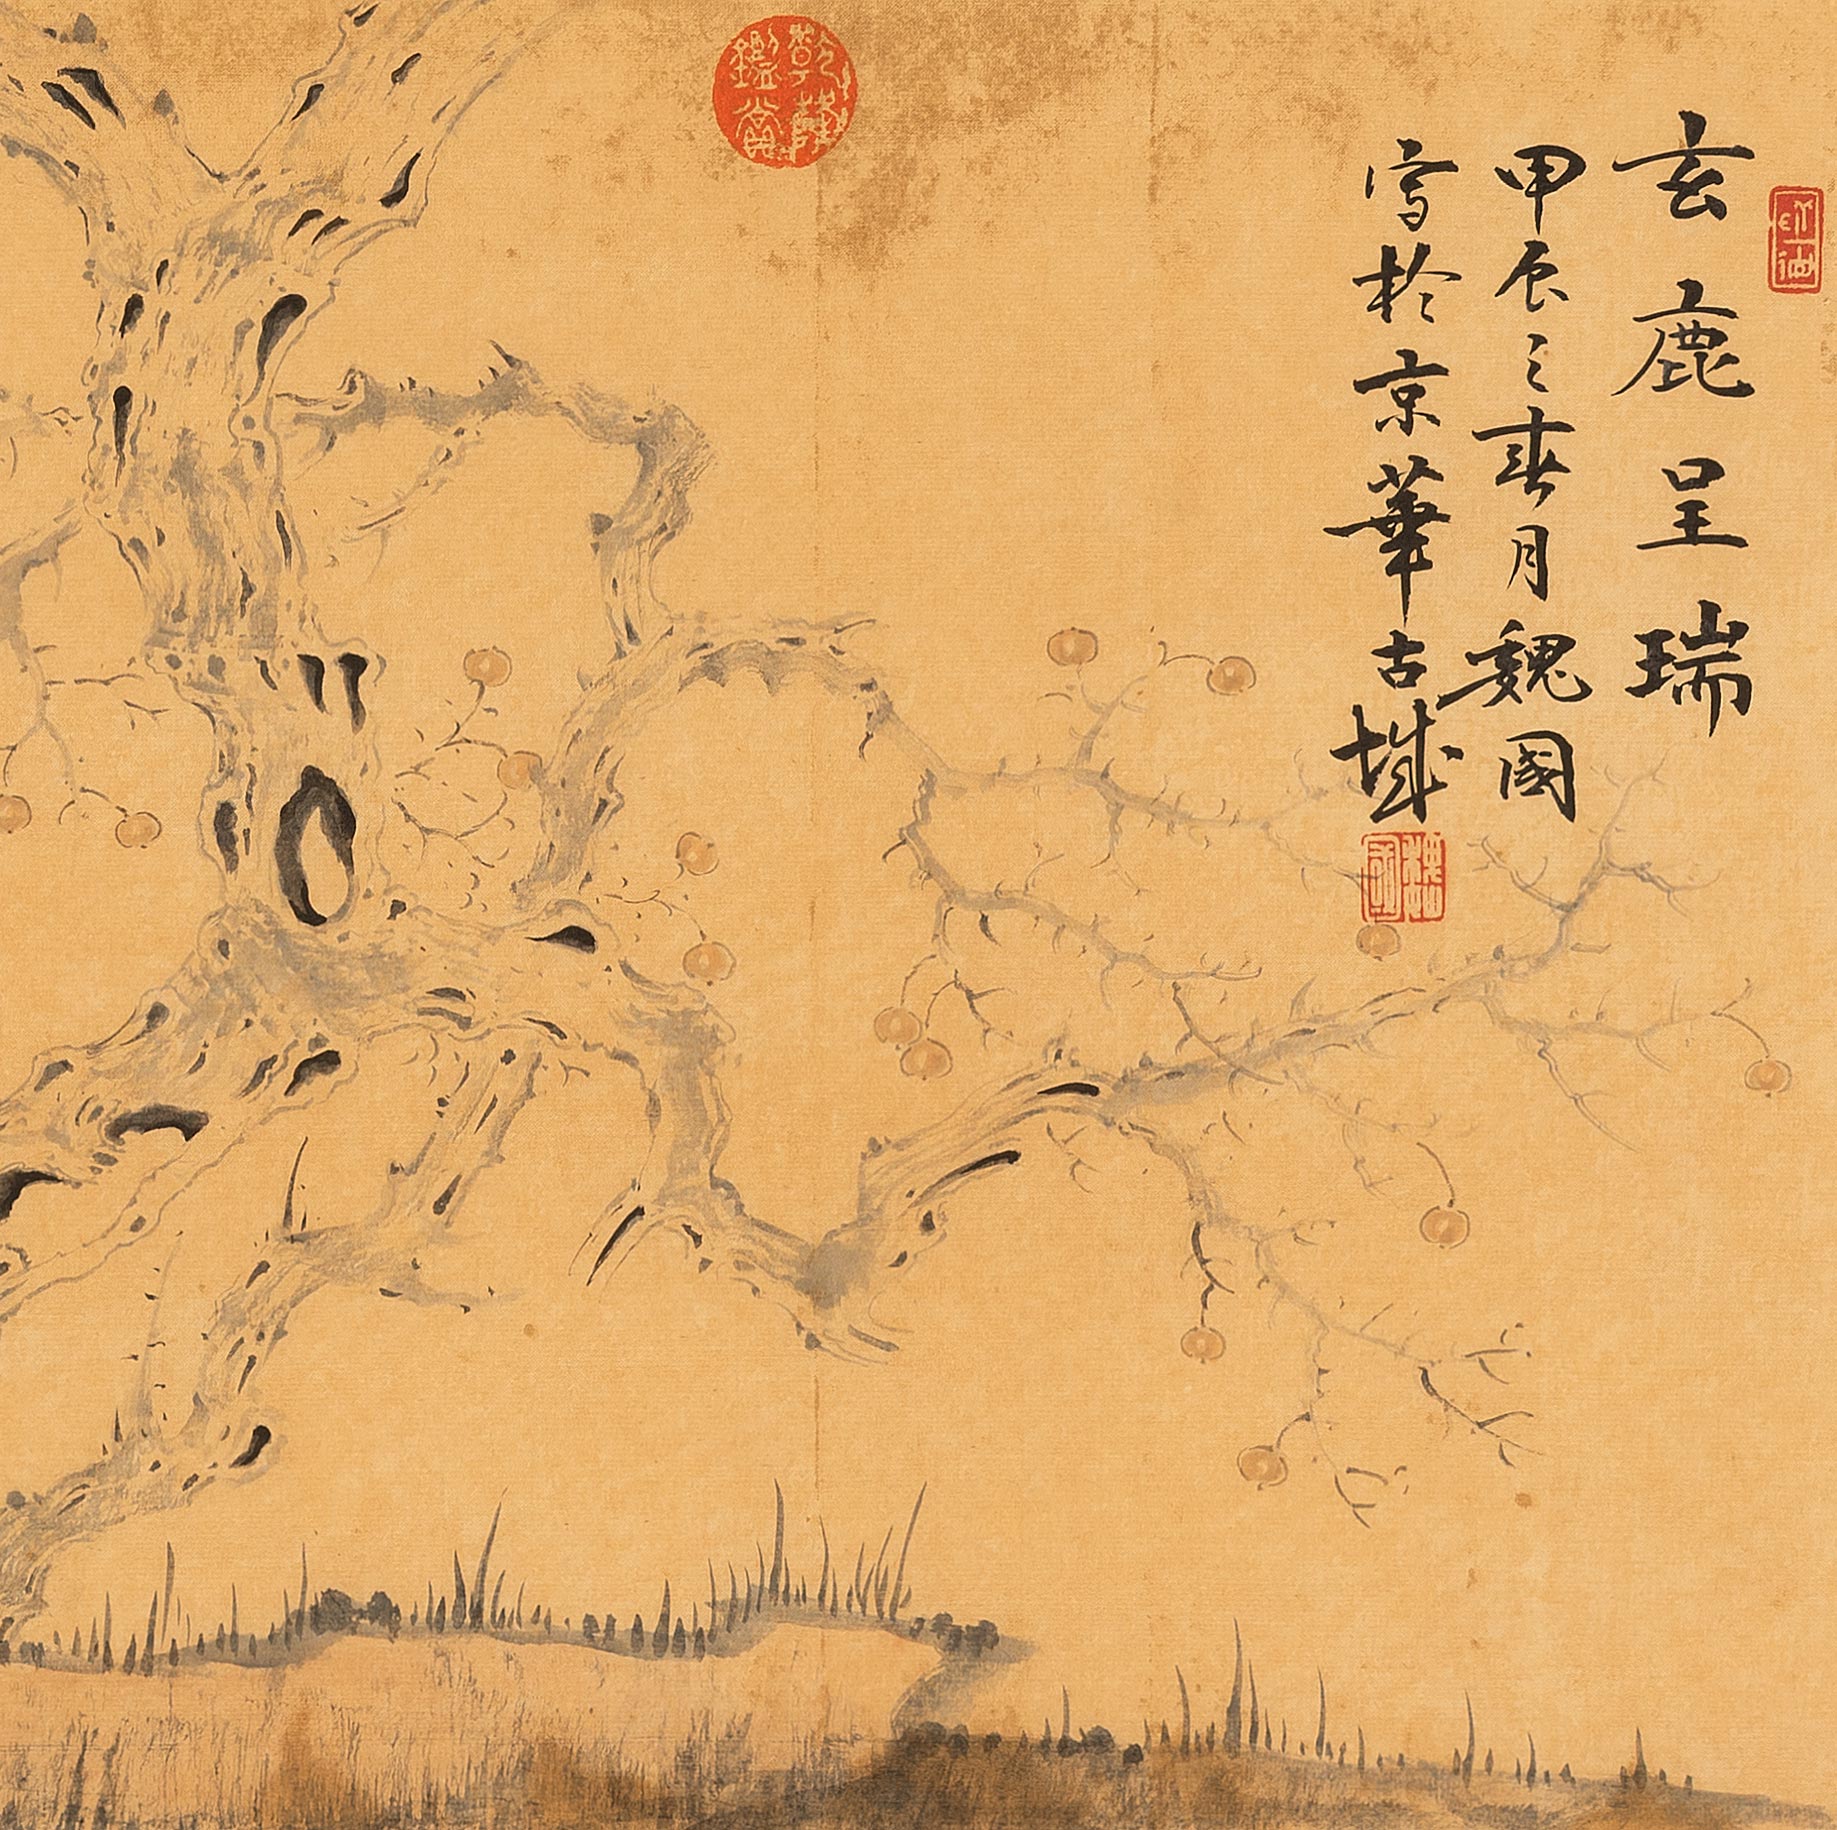 玄鹿呈瑞
甲辰之春月魏國
寫於京華古城
乾隆鑑賞